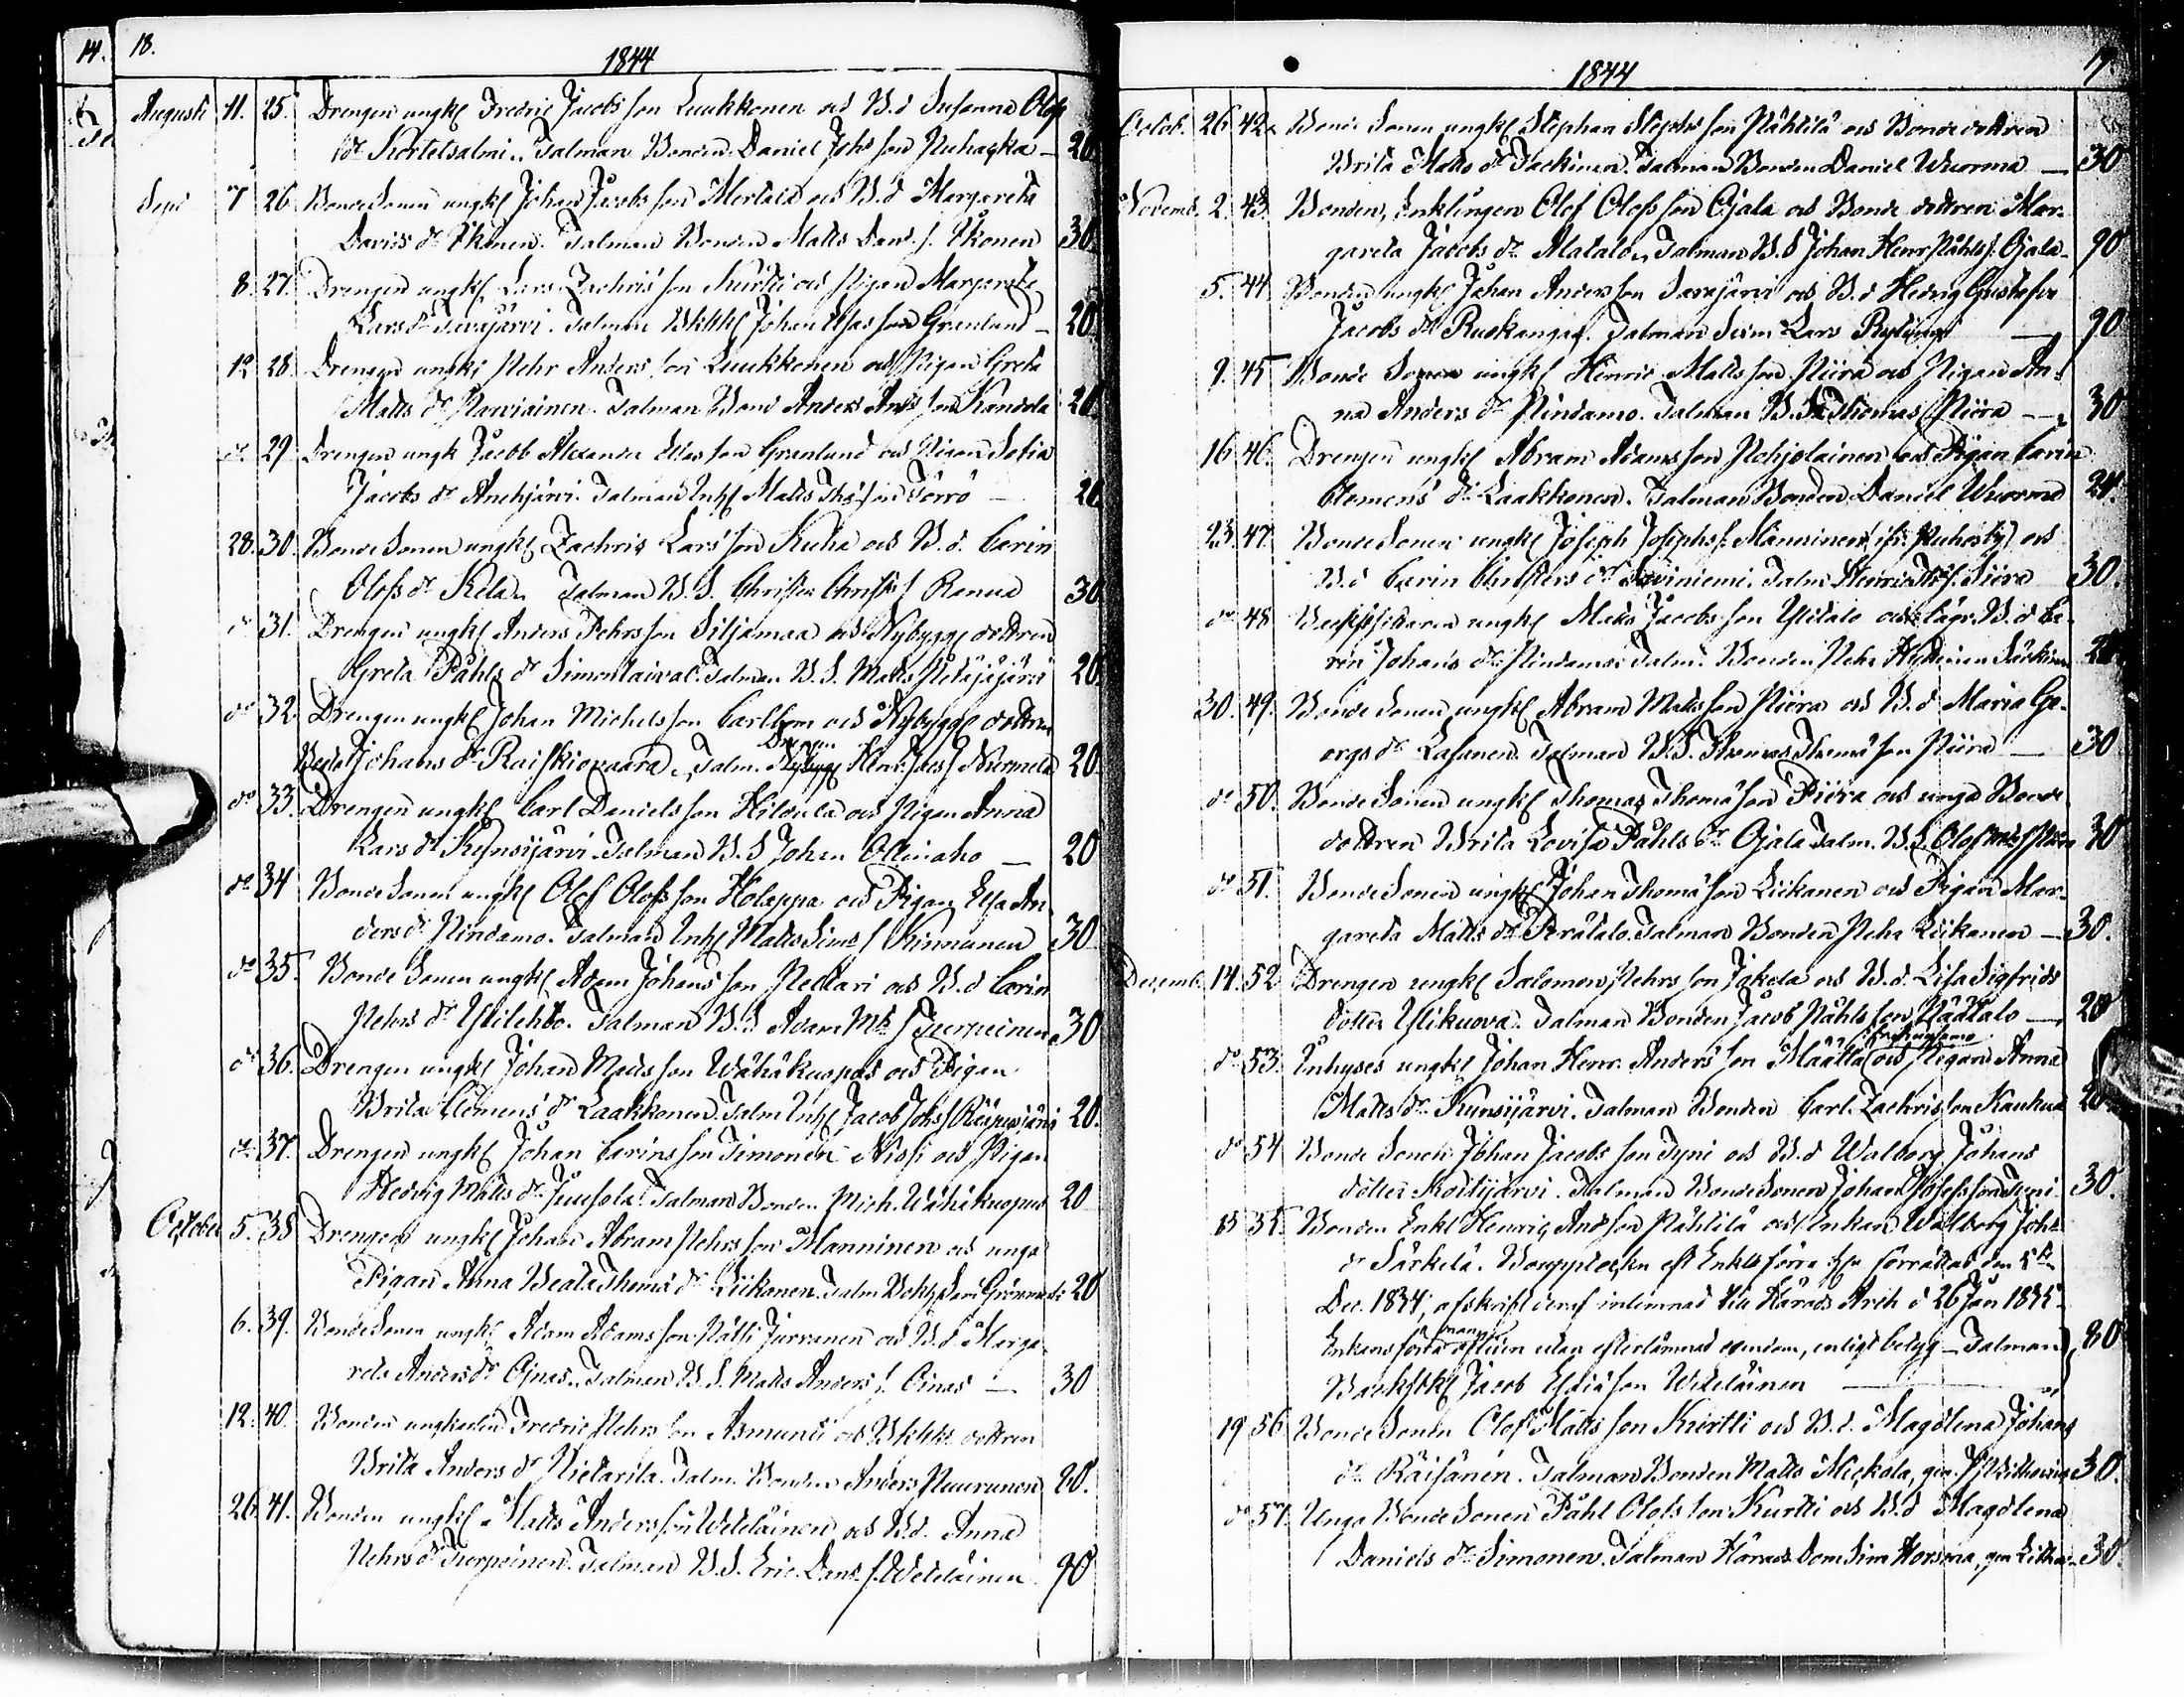 14. 18.
1844
Augusti 11. 25. Drengen ungk. Fredric Jacobs son Luukkonen och B.d Susanna Olofs
dr Kortetsalmi. Talman Bonden Daniel Johs son Puhaçka — 20.
Sept 7 26 Bonde Sonen ungk. Johan Jacobs son Mertala och B.d Margareta
Davids dr Ikonen. Talman Bonden Matts Dav. s. Ikonen 30.
8. 27. Drengen ungk. Lars Zachris son Kurtti och Pigan Margareta
Lars dr Tevajärvi. Talman Johan Elias son Granlund — 20.
12 28. Drengen ungk. Pehr Anders son Luukkonen och Pigan Greta
Matts dr Parviainen. Talman Bond Anders And. son Kandola 20.
do 29 Drengen ungk Jacob Alexander Elias son Granlund och Pigan Sofia
Jacobs dr Anehjärvi. Talman Inh. Matts Ths son Törrö — 20
28. 30. Bonde Sonen ungk. Zachris Lars son Kuha och B.d. Carin
Olofs dr Kela. Talman B.S. Christer Christ. s Ranua 30.
do 31. Drengen ungk. Anders Pehrs son Siljamaa och Nybygg. dottren
Greta Påhls dr Simontaival. Talman B.S. Matts Petäjäjärvi 20.
do 32. Drengen ungk. Johan Michels son Carlbom och Nybygg. dottren
Drengen
Beata Johans dr Raiskiovaara. Talm. Nybygg Henr. Jacs. s Nurmela 20.
do 33. Drengen ungk. Carl Daniels son Hildula och Pigan Anna
Lars dr Kynsijärvi. Talman B.S Johan Ollinaho — 20
do 34 Bonde Sonen ungk. Olof Olofs son Holappa och Pigan Elsa An-
ders dr Pindamo. Talman Inh. Matts Sims. s Kinnunen 30
do 35. Bonde Sonen ungk. Adam Johans son Pettari och B.d Carin
Pehrs dr Ylilehto. Talman B.S Adam Mts. s Tuerpeinen 30
do 36. Drengen ungk. Johan Matts son Wähäkuopus och Pigan
Brita Clemens dr Laakkonen. Talm Inh. Jacob Johs. s Räispusjärvi 20.
do 37. Drengen ungk. Johan Carins son Timonen Nissi och Pigan
Hedvig Matts dr Juusola. Talman Bonden Mich. Wähäkuopus 20
October 5. 38 Drengen ungk. Johan Abram Pehrs son Manninen och unga
Pigan Anna Beata Thoms dr Liikanen. Talm 20
6. 39. Bonde Sonen ungk. Adam Adams son Pätsi Jurvanen och B.d Marga-
reta Anders dr Ojnas. Talman B.S. Matts Anders s. Oinas — 30
12. 40. Bonden ungkarlen Fredric Pehrs son Asmunti och dottren
Brita Anders dr Nietarila. Talm. Bonden Anders Puurunen 80.
26. 41. Bonden ungk. Matts Anders son Weteläinen och B.d. Anna
Pehrs dr Tuerpeinen. Talman B.S. Eric Dan. s. Weteläinen 90
1844 19.
Octob. 26 42. Bonde Sonen ungk. Stephan Stephs son Pähtilä och Bondedottren
Brita Matts dr Jaekinen. Talman Bonden Daniel Wuorma — 30
Novemb. 2. 43. Bonden, Enklingen Olof Olofs son Ojala och Bonde dottren Mar-
gareta Jacobs dr Matalo. Talman B.S Johan Henr Påhls s. Ojala. 90
5. 44 Bonden ungk. Johan Anders son Tavajärvi och B.d Hedvig Gustafva
Jacobs dr Ruokangas. Talman Lars — 90
9. 45 Bonde Sonen ungk. Henric Matts son Piira och Pigan An-
na Anders dr Pindamo. Talman B.S. Thomas Piira — 30
16 46. Drengen ungk. Abram Adams son Pohjolainen och Pigan Carin
Clemens dr Laakkonen. Talman Bonden Daniel Wuorma 20.
23. 47. Bonde Sonen ungk. Joseph Josephs s. Männinen och
B.d Carin Christers dr Saviniemi. Talm Henric Piira 30.
do 48 ungk. Matts Jacobs son Ylitalo och B.d Ca-
rin Johans dr Pindamo. Talm. Bonden Pehr 20
30. 49. Bonde Sonen ungk. Abram Matts son Piira och B.d Maria Ge-
orgs dr Lasanen. Talman B.S. Thomas Thoms son Piira — 30
do 50. Bonde Sonen ungk. Thomas Thoms son Piira och unga Bonde
dottren Brita Lovisa Påhls dr Ojala Talm. B.S. Olof Piira 30
do 51. Bonde Sonen ungk. Johan Thoms son Liikanen och Pigan Mar-
gareta Matts dr Perätalo. Talman Bonden Pehr Liikanen — 30.
Decemb. 14. 52 Drengen ungk. Salomon Pehrs son Jokela och B.d. Lisa Sigfrids
dotter Ylikuova. Talman Bonden Jacob Påhls son Päätalo — 20
do 53. Inhyses ungk. Johan Henr. Anders son Määttä och Pigan Anna
Matts dr Kynsijärvi. Talman Bonden Carl Zachris son Kaukua 20
do 54 Bonde Sonen Johan Jacobs son Tyni och B.d Walborg Johans
dotter Koitijärvi. Talman Bonde Sonen Johan Josephs son Tyni 30.
15 55. Bonden Enkl. Henric And. son Pähtilä och Enkan Walborg Johs
dr Särkelä. Boupptekn eft Enkls förra hu förrättad den 5te
Dec. 1834; afskrift deraf inlemnad till Härads Arch d 26 Jan 1835
man
Enkans förra afliden utan efterlämnad egendom, enligt betyg — Talman 80
Jacob Esaias son Weteläinen —
19 56 Bonde Sonen Olof Matts son Kurtti och B.d. Magdlena Johans
dr Räisänen. Talman Bonden Matts Mickola, gen. 30.
do 57. Unga Bonde Sonen Påhl Olofs son Kurtti och B.d Magdlena
Daniels dr Simonen. Talman Härads Dom Sim Horsma, gen 30.